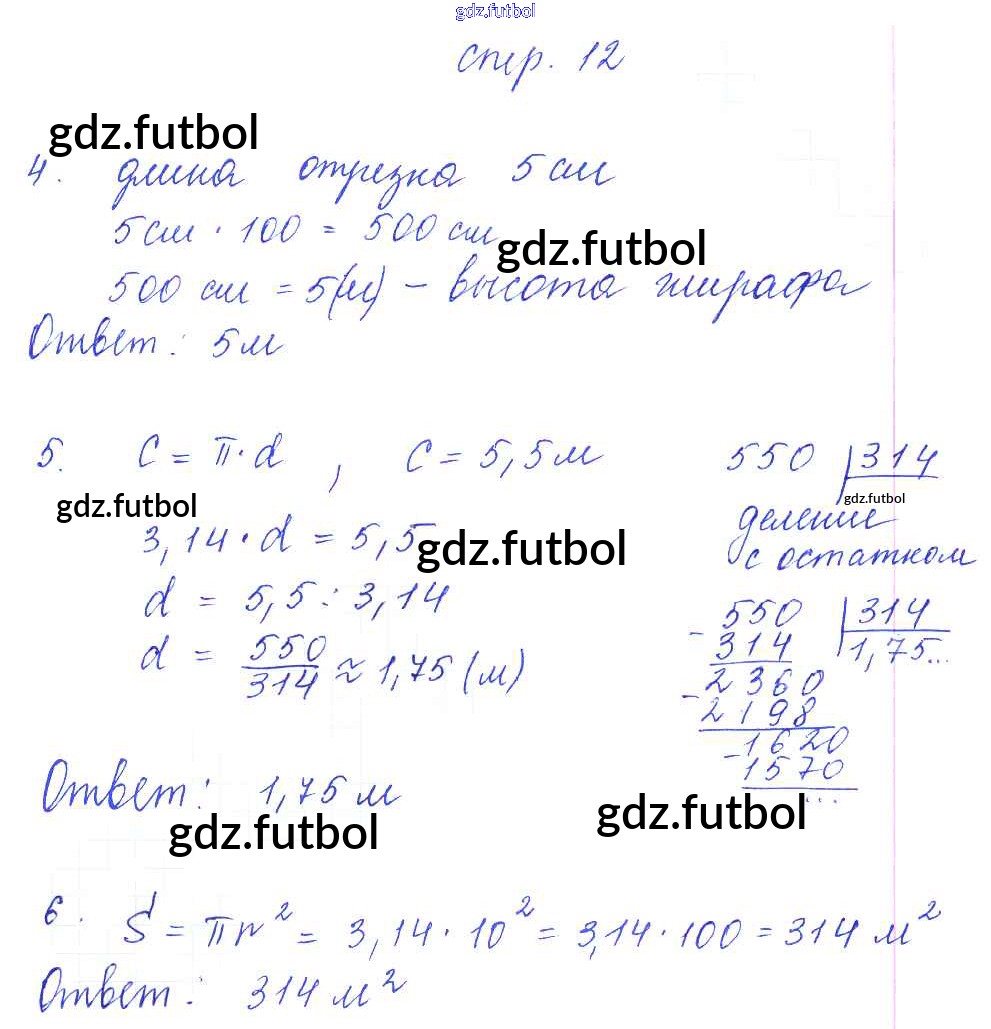 gdz.futbol
стр. 12
gdz.futbol
4. длина отрезка 5 см
5 см · 100 = 500 см
gdz.futbol
500 см = 5 (м) – высота жирафа
Ответ: 5 м
5. C = π · d , C = 5,5 м
550 | 314
gdz.futbol
gdz.futbol
3,14 · d = 5,5
gdz.futbol
деление
с остатком
d = 5,5 : 3,14
d = 550/314 ≈ 1,75 (м)
- 550 | 314
314 | 1,75...
- 2360
2198
- 1620
1570
...
Ответ: 1,75 м
gdz.futbol
gdz.futbol
6. S = πr² = 3,14 · 10² = 3,14 · 100 = 314 м²
Ответ: 314 м²